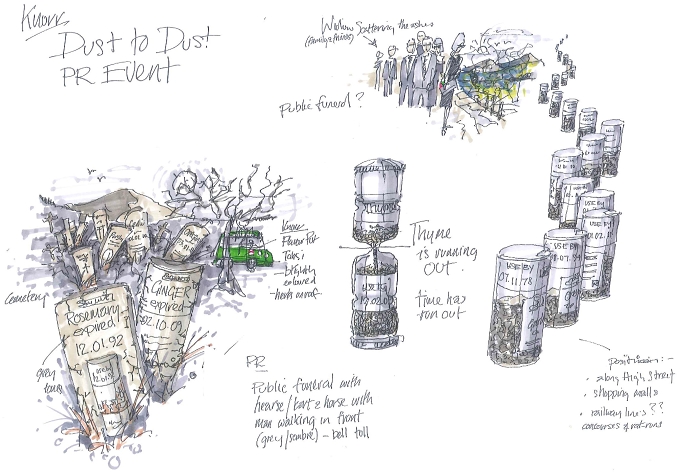 Knorr
Dust to Dust
PR Event
Widow scattering the ashes
(family & friends)
Public funeral?
Cemetery
grey
Rosemary
expired
12.01.92
GINGER
expired
02.10.09
Knorr
Flavour Pot
Taxi
brightly
coloured
herbs on roof
Thyme
is running
OUT.
time has
run out
USE BY
USE BY
07.11.78
USE BY
USE BY
PR
Public funeral with
hearse/cart & horse with
man walking in front
(grey/sombre) - bell toll
position:-
• along High Street
• shopping malls
• railway lines??
concourses